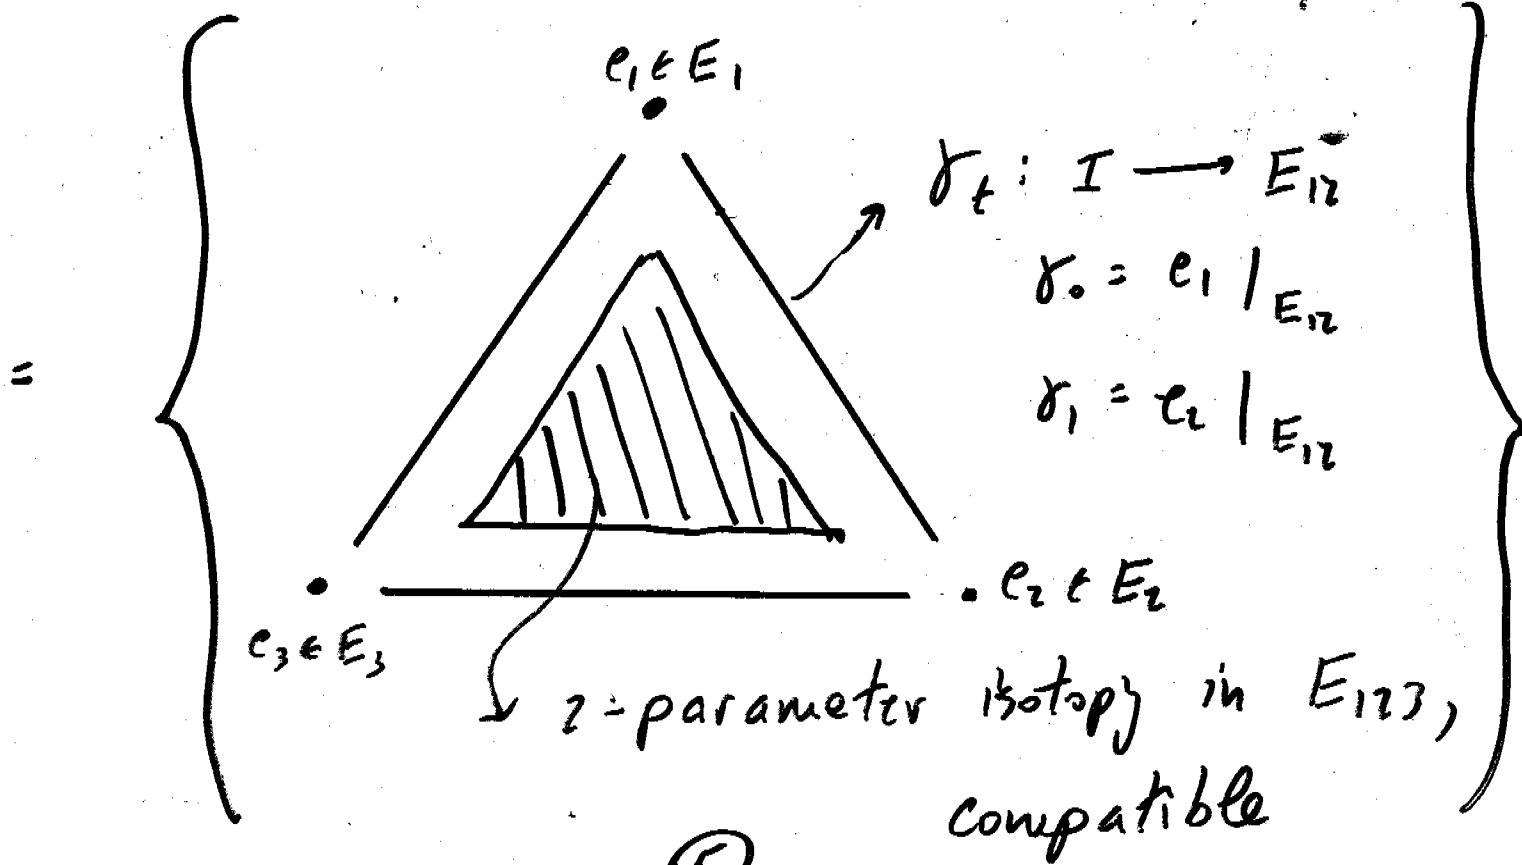 e₁ ∈ E₁
γ_t : I → E₁₂
γ₀ = e₁ |_{E₁₂}
=
γ₁ = e₂ |_{E₁₂}
e₂ ∈ E₂
e₃ ∈ E₃
2-parameter isotopy in E₁₂₃,
compatible
5